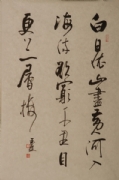 白日依山盡黃河入
海流欲窮千里目
更上一層樓